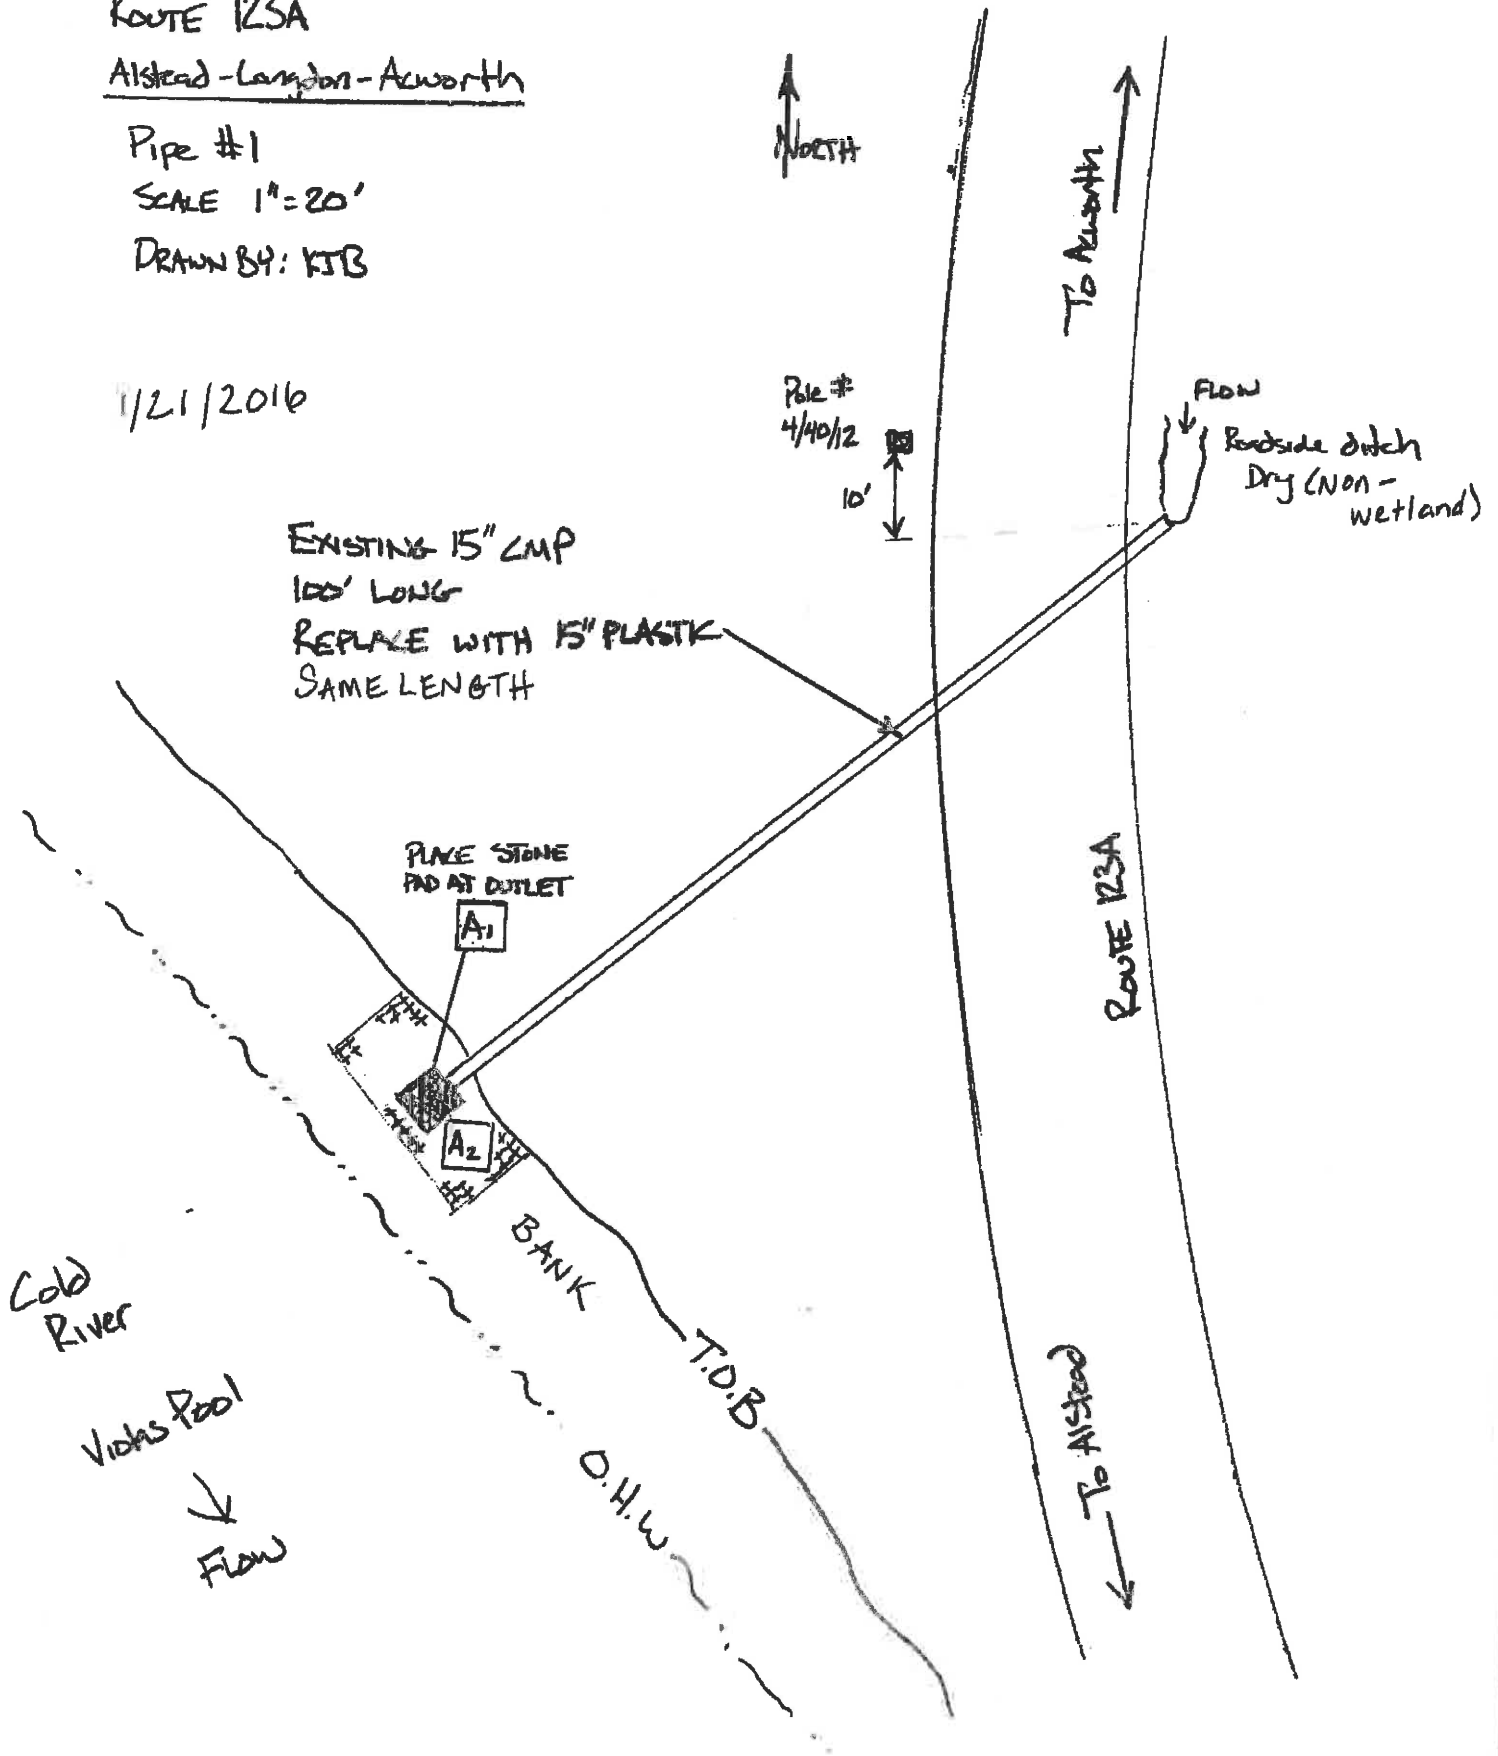 ROUTE 123A
Alstead-Langdon-Acworth
Pipe #1
SCALE 1"=20'
DRAWN BY: KJB
1/21/2016
NORTH
To Acworth
Pole #
4/40/12
10'
FLOW
Roadside ditch
Dry (Non-
wetland)
EXISTING 15" CMP
100' LONG
REPLACE WITH 15" PLASTIC
SAME LENGTH
PLACE STONE
PAD AT OUTLET
A1
A2
ROUTE 123A
BANK
Cold
River
T.O.B
To Alstead
Pool
O.H.W
FLOW